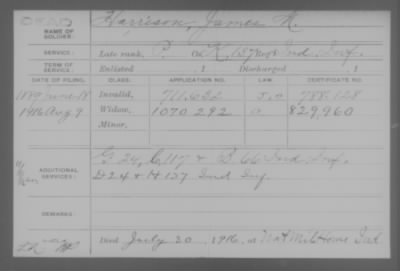 DEAD
NAME OF SOLDIER: Harrison, James N.
SERVICE: Late rank, P. Co K, 157 Regt Ind. Inf.
TERM OF SERVICE: Enlisted 1 Discharged 1
DATE OF FILING. CLASS. APPLICATION NO. LAW. CERTIFICATE NO.
1889 June 18 Invalid, 711,632 788,128
1916 Aug 9 Widow, 1070 292 829,960
Minor,
ADDITIONAL SERVICES: G 24, C 117 & B 66 Ind Inf.
D 24 & H 157 Ind Inf
REMARKS:
Died July 20 1916, at Nat Mil Home Ind